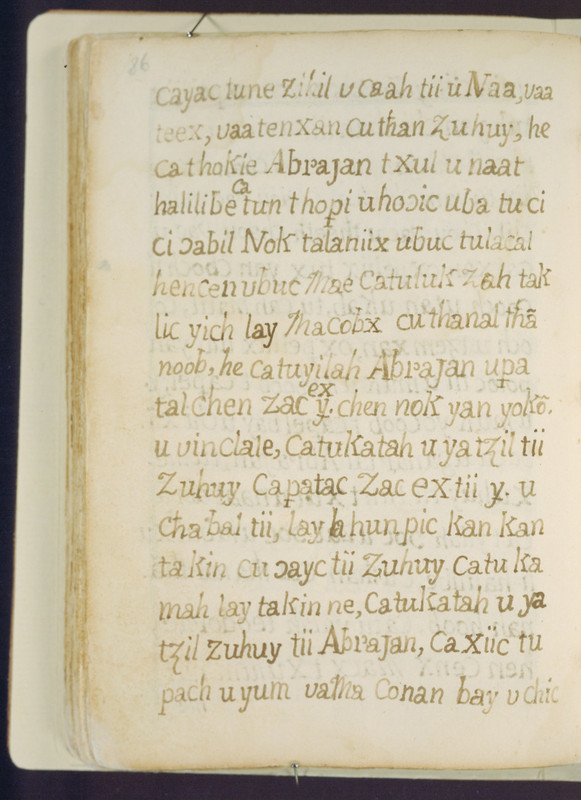 86
cayac tune Zihil v caah tii u Naa, vaa
teex, vaa tenxan cu than Zuhuy, he
ca thokie Abrajan t xul u naat
halilibe ca tun thopi u hoɔic uba tu ci
ci ɔabil Nok talaniix ubuc tulacal
hencen ubuc thae Catuluk Zah tak
lic yich lay thacobx cu thanal thã
noob, he catuyilah Abrajan upa
tal chen Zac ex y. chen nok yan yokõ.
u vinclale, Catukatah u yatzil tii
Zuhuy Capatac Zac ex tii y. u
chabal tii, lay lahun pic kan kan
takin cu ɔayc tii Zuhuy Catu ka
mah lay takin ne, Catukatah u ya
tzil Zuhuy tii Abrajan, Ca xiic tu
pach u yum vatha Conan bay v chic